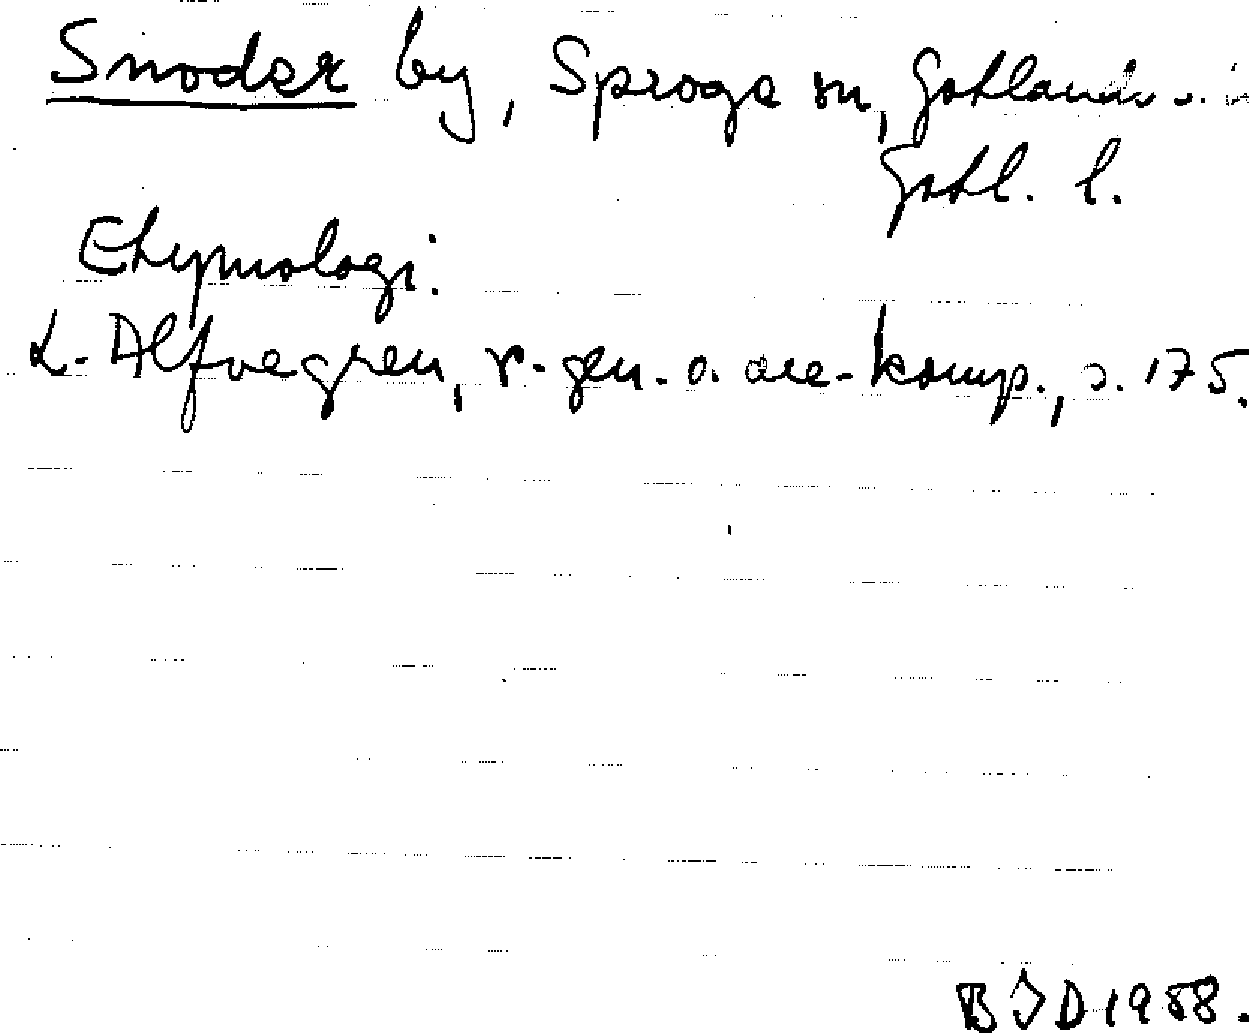 Snoder by, Sproge sn, Gotlands s.
Gotl. l.
Etymologi:
L. Alfvegren, r-gen. o. are-komp., s. 175.
BID 1988.